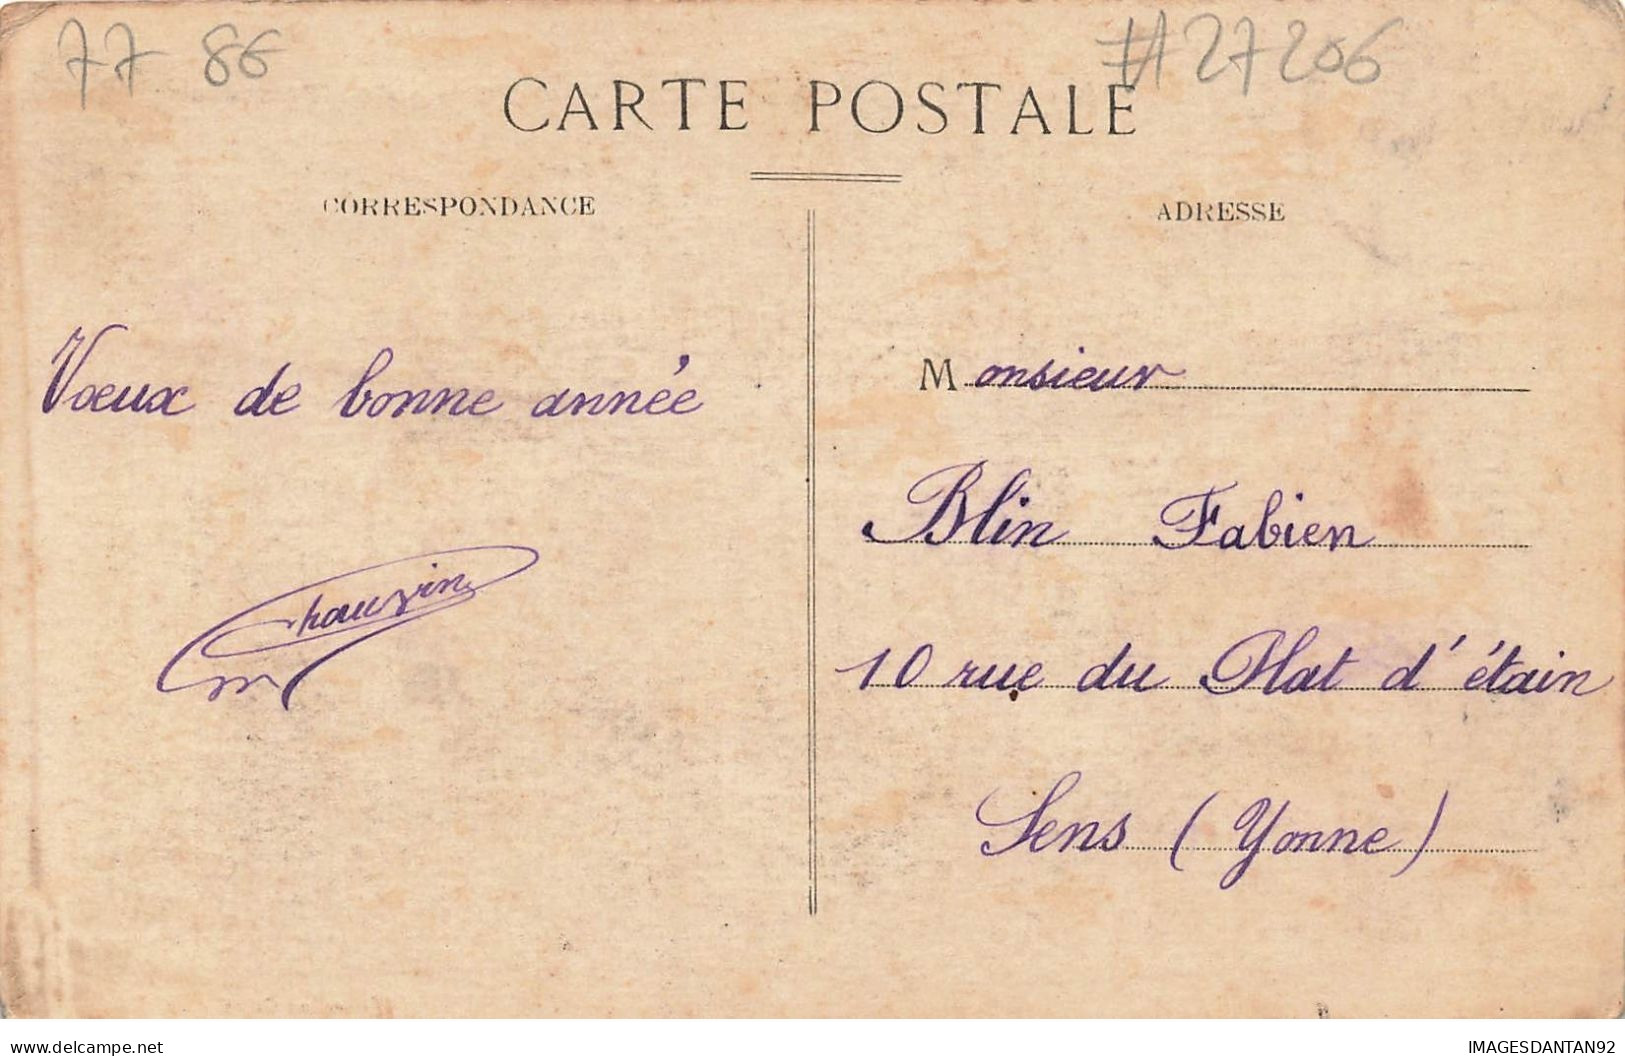 77 86
#27206
CARTE POSTALE
CORRESPONDANCE
ADRESSE
Vœux de bonne année
Chauvin
Monsieur
Blin Fabien
10 rue du Plat d'étain
Sens (Yonne)
delcampe.net
IMAGESDANTAN92